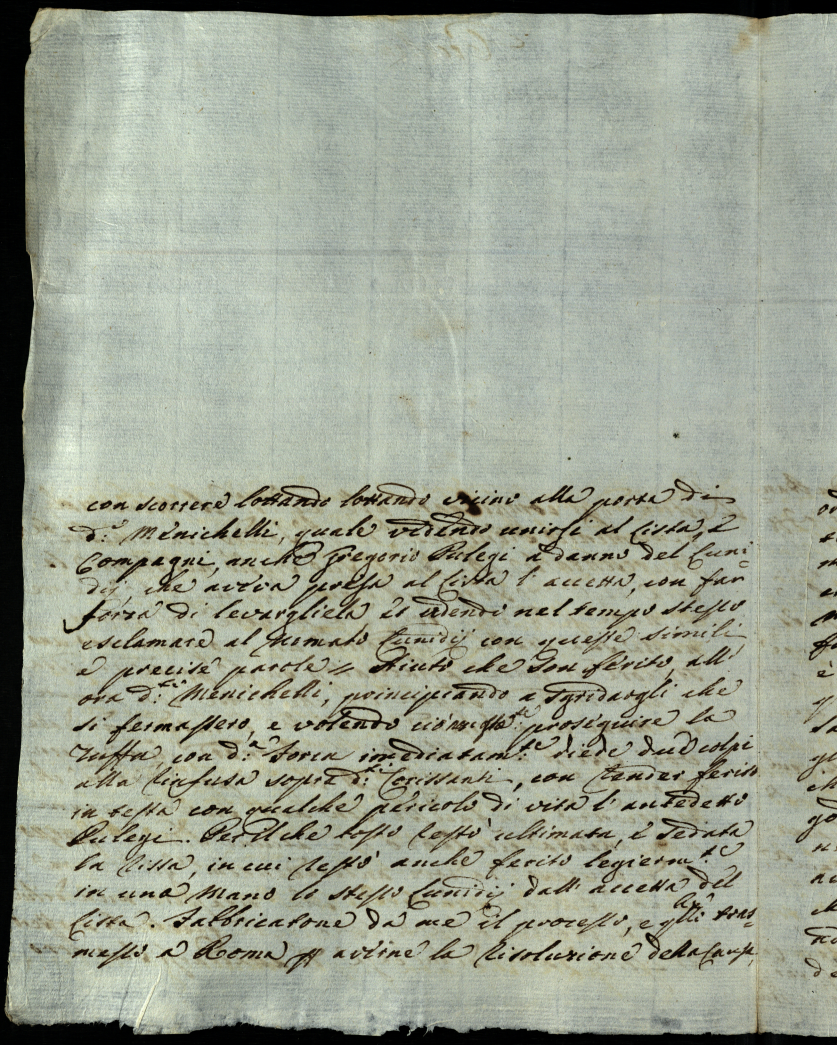 con scorrere lottando lottando vicino alla porta di
d.º Menichelli, quale vedendo unirsi al Cista, e
Compagni, anche Gregorio Pulegi a danno del Cuni-
dij, che aveva presa al Cista l'accetta, con far
forza di levargliela, et udendo nel tempo stesso
esclamare al nomato Cunidij con queste simili
e precise parole = Aiuto che son ferito, all'
ora d.º Menichelli, principiando a gridargli che
si fermassero, e volendo ciò non ost.te proseguire la
zuffa, con d.ª forca immediatam.te diede due colpi
alla rinfusa sopra d.ti Corissanti, con render ferito
in testa con qualche pericolo di vita l'antedetto
Pulegi. Per il che tosto restò ultimata, e sedata
la rissa, in cui restò anche ferito legierm.te
in una mano lo stesso Cunidij dall'accetta del
Cista. Fabbricatone da me il processo, e quello tras-
messo a Roma p avirne la risoluzione della Causa,